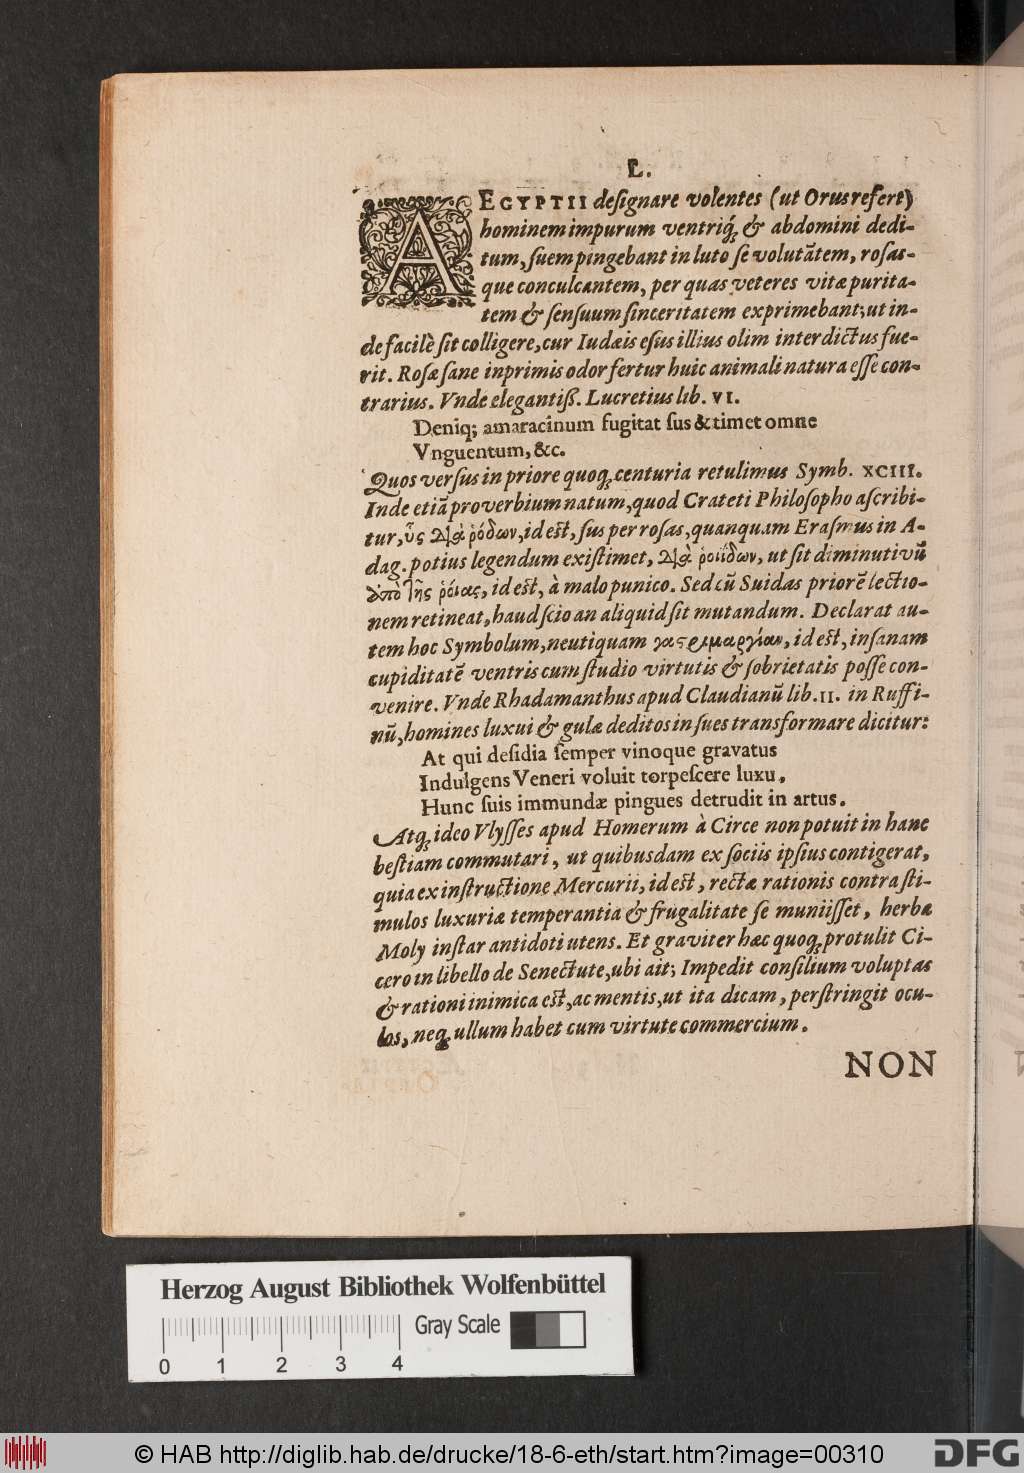 L.
AEGYPTII deſignare volentes (ut Orus refert)
hominem impurum ventriq́; & abdomini dedi-
tum, ſuem pingebant in luto ſe volutãtem, roſas-
que conculcantem, per quas veteres vitæ purita-
tem & ſenſuum ſinceritatem exprimebant; ut in-
de facilè ſit colligere, cur Iudæis eſus illius olim interdictus fue-
rit. Roſæ ſane inprimis odor fertur huic animali natura eſſe con-
trarius. Vnde elegantiß. Lucretius lib. VI.
Deniq; amaracinum fugitat ſus & timet omne
Vnguentum, &c.
Quos verſus in priore quoq; centuria retulimus Symb. XCIII.
Inde etiã proverbium natum, quod Crateti Philoſopho aſcribi-
tur, ὗς διὰ ῥόδων, id eſt, ſus per roſas, quanquam Eraſmus in A-
dag. potius legendum exiſtimet, διὰ ῥοιΐδων, ut ſit diminutivũ
ἀπὸ τῆς ῥόιας, id eſt, à malo punico. Sed cũ Suidas priorẽ lectio-
nem retineat, haud ſcio an aliquid ſit mutandum. Declarat au-
tem hoc Symbolum, neutiquam γαςριμαργίαν, id eſt, inſanam
cupiditatẽ ventris cum ſtudio virtutis & ſobrietatis poſſe con-
venire. Vnde Rhadamanthus apud Claudianũ lib. II. in Ruffi-
nũ, homines luxui & gulæ deditos in ſues transformare dicitur:
At qui deſidia ſemper vinoque gravatus
Indulgens Veneri voluit torpeſcere luxu.
Hunc ſuis immundæ pingues detrudit in artus.
Atq; ideo Vlyſſes apud Homerum à Circe non potuit in hanc
beſtiam commutari, ut quibusdam ex ſociis ipſius contigerat,
quia ex inſtructione Mercurii, id eſt, rectæ rationis contra ſti-
mulos luxuriæ temperantia & frugalitate ſe muniiſſet, herbæ
Moly inſtar antidoti utens. Et graviter hæc quoq; protulit Ci-
cero in libello de Senectute, ubi ait; Impedit conſilium voluptas
& rationi inimica eſt, ac mentis, ut ita dicam, perſtringit ocu-
los, neq; ullum habet cum virtute commercium.
NON
Herzog August Bibliothek Wolfenbüttel
Gray Scale
0 1 2 3 4
© HAB http://diglib.hab.de/drucke/18-6-eth/start.htm?image=00310
DFG